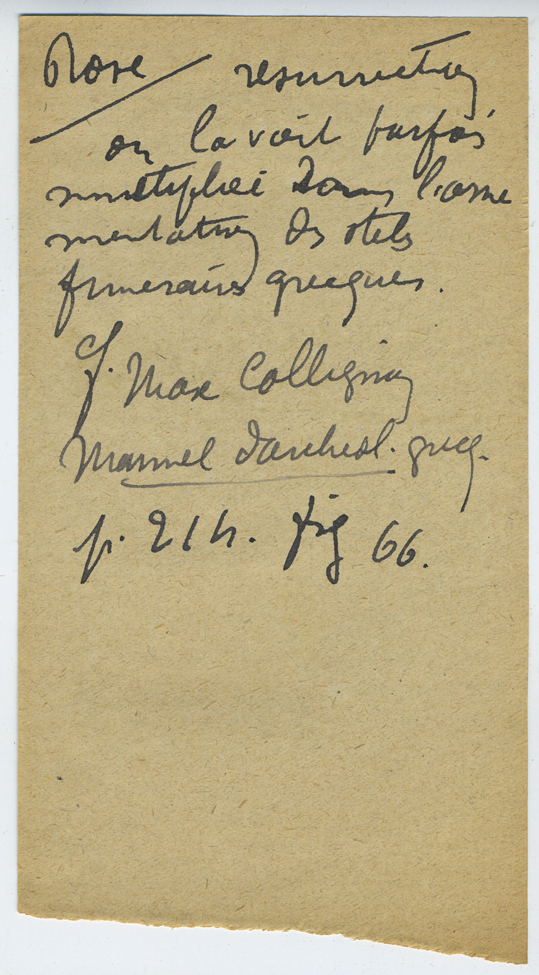 Rose / resurrection
on la voit parfois
multipliée dans l'orne
mentation des stèles
funeraires grecques.
cf. Max Collignon
Manuel d'archeol. grecq.
p. 214. fig 66.